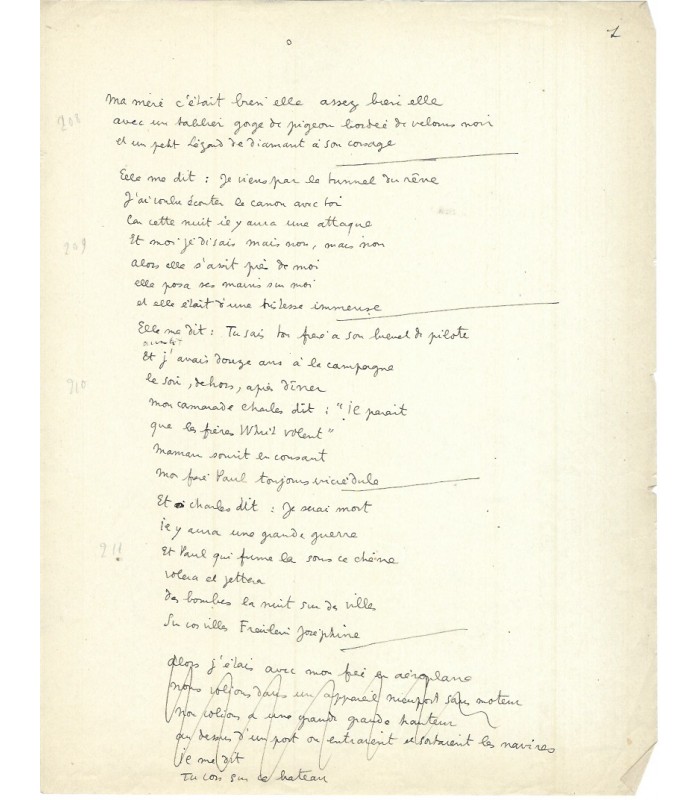 1
Ma mère c'était bien elle assez bien elle
208
avec un tablier gorge de pigeon bordée de velours noir
et un petit lézard de diamant à son corsage
Elle me dit : Je viens par le tunnel du rêve
J'ai voulu écouter le canon avec toi
Car cette nuit il y aura une attaque
209
Et moi je disais mais non, mais non
Alors elle s'assit près de moi
elle posa ses mains sur moi
et elle était d'une tristesse immense
Elle me dit : Tu sais ton frère a son brevet de pilote
Et j'avais douze ans à la campagne
210
le soir, dehors, après dîner
mon camarade Charles dit : "il parait
que les frères Whrit volent"
Maman sourit en cousant
Mon frère Paul toujours incrédule
Et Charles dit : Je serai mort
il y aura une grande guerre
211
Et Paul qui fume là sous ce chêne
volera et jettera
Des bombes la nuit sur des villes
Sur vos villes Fraülein Joséphine
Alors j'étais avec mon frère en aéroplane
Nous volions dans un appareil nieuport sans moteur
Nous volions à une grande grande hauteur
au dessus d'un port où entraient et sortaient les navires
il me dit
Tu vois sur ce bateau